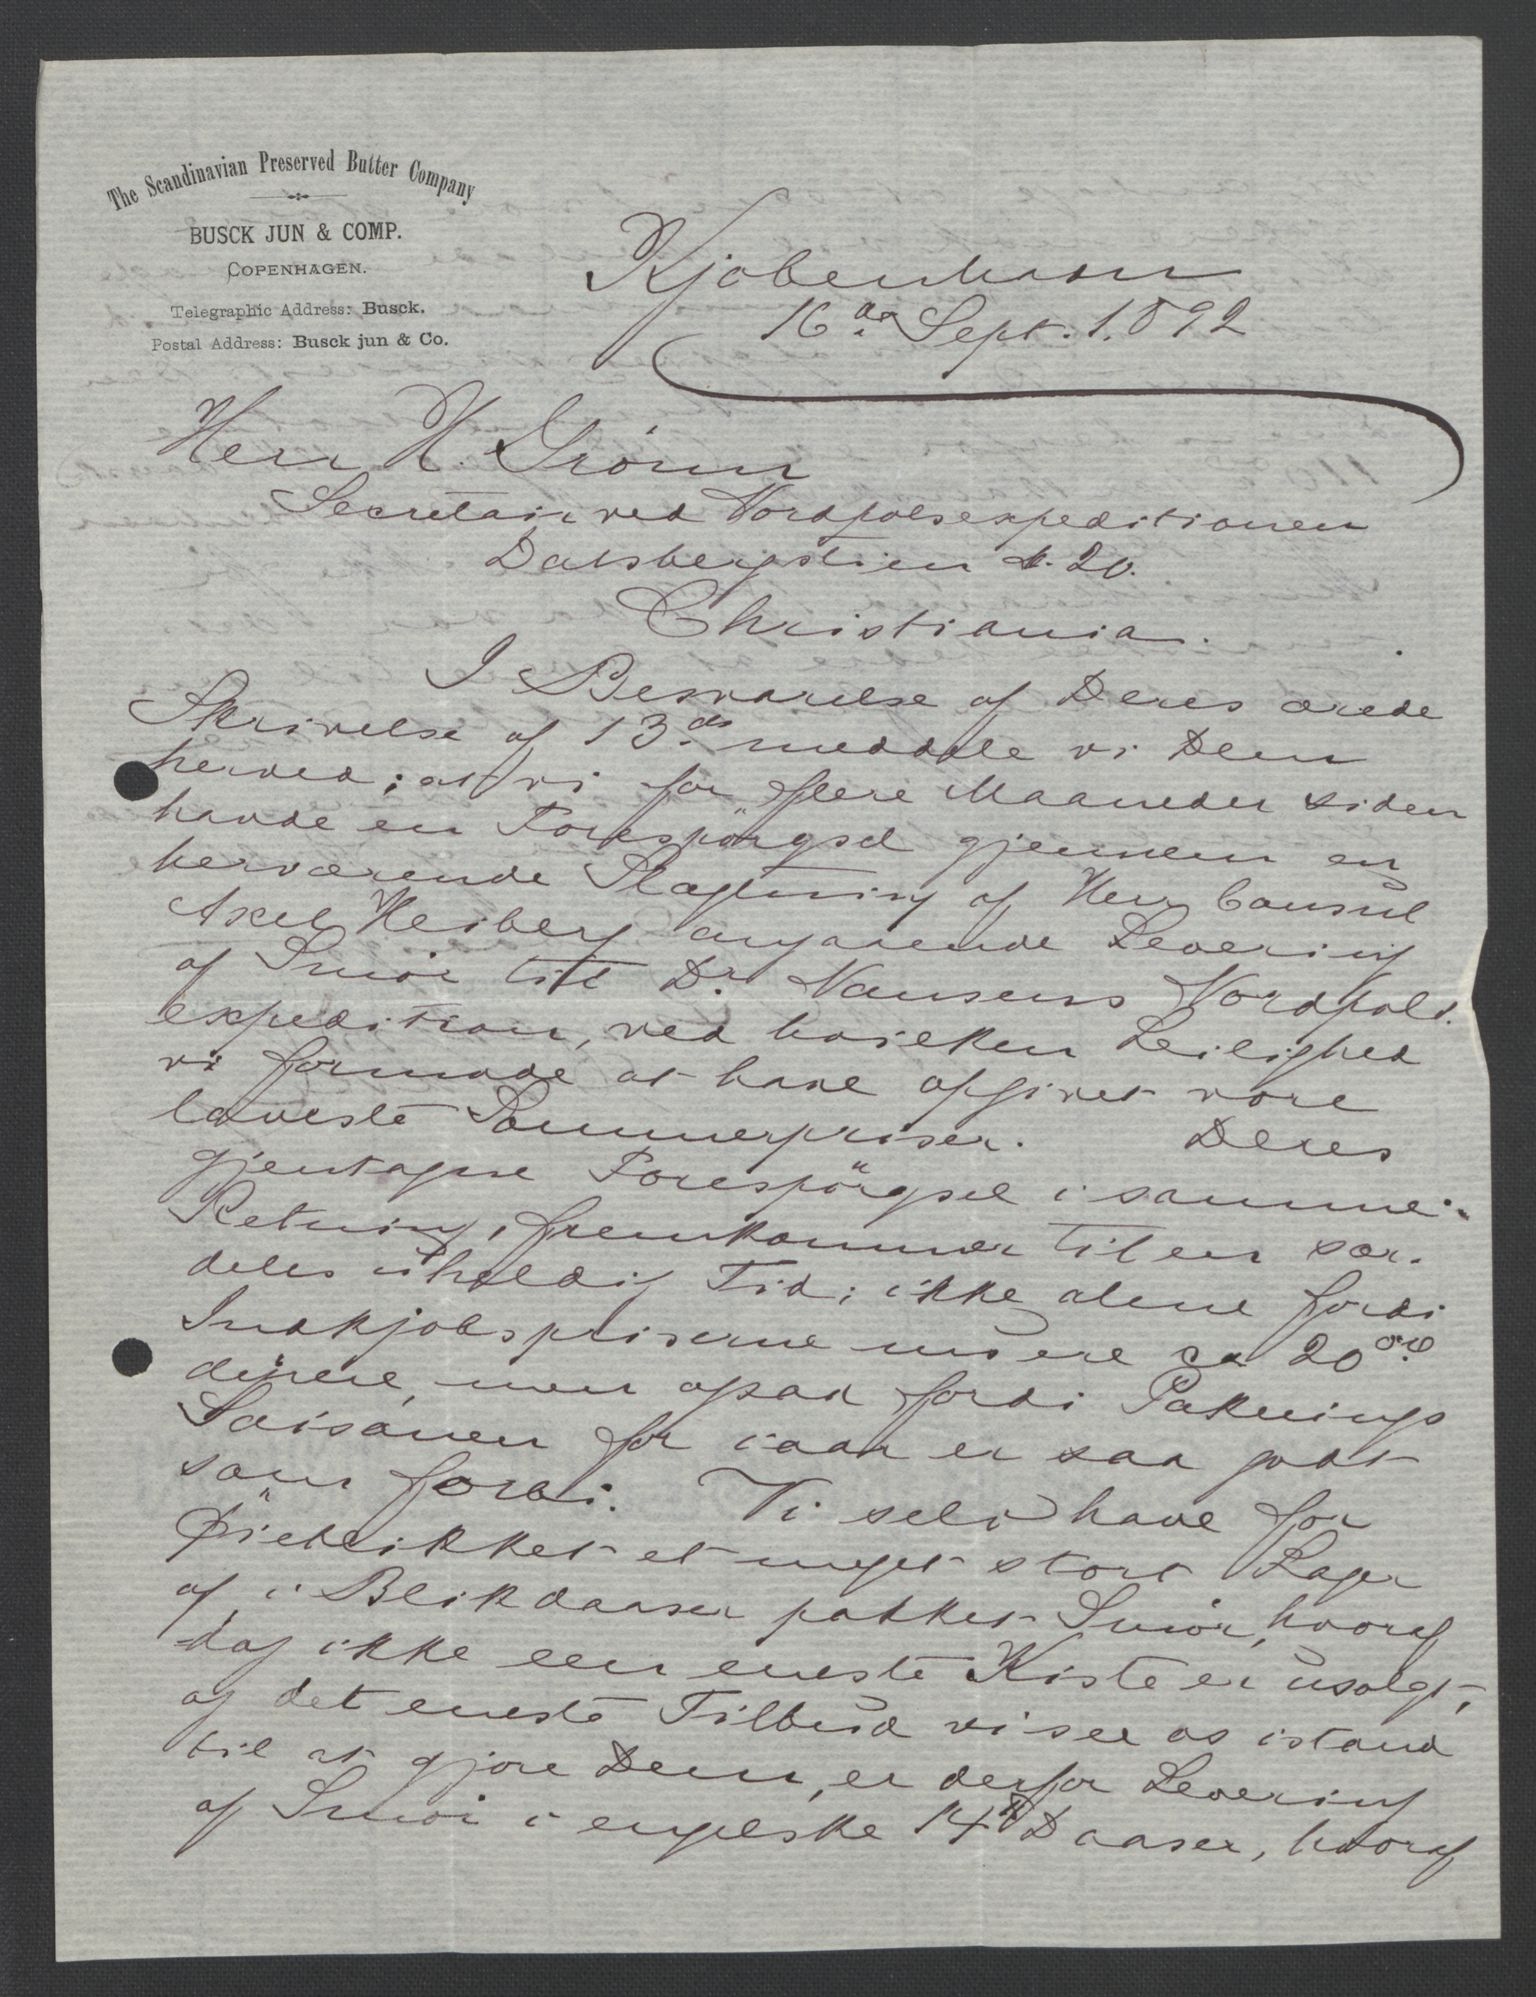 The Scandinavian Preserved Butter Company
BUSCK JUN & COMP.
COPENHAGEN.
Telegraphic Address: Busck.
Postal Address: Busck jun & Co.
Kjøbenhavn
16de Sept. 1892
Herr H. Grönn
Secretair ved Nordpolsexpeditionen
Dalsbergstien 20.
Christiania.
I Besvarelse af Deres ærede
Skrivelse af 13ds meddele vi Dem
herved; at vi for flere Maaneder siden
havde en Forespörgsel gjennem en
herværende Slagtning af Herr Consul
Axel Heiberg angaaende Levering
af Smör til Dr. Nansens Nordpols-
expedition, ved hvilken Leilighed
vi formode at have opgivet vore
laveste Sommerpriser. Deres
gjentagne Forespörgsel i samme
Retning, fremkommer til en sær-
deles uheldig Tid; ikke alene fordi
Indkjöbspriserne nu ere ca 20 öre
dÿrere, men ogsaa fordi Paknings
Saisonen for iaar er saa godt
som forbi. Vi selv have for
Øieblikket et meget stort Lager
af i Blikdaaser pakket Smör, hvoraf
dog ikke een eneste Kiste er usolgt,
og det eneste Tilbud vi see os istand
til at gjøre Dem, er derfor Levering
af Smör i engelske 14 ℔ Daaser, hvoraf